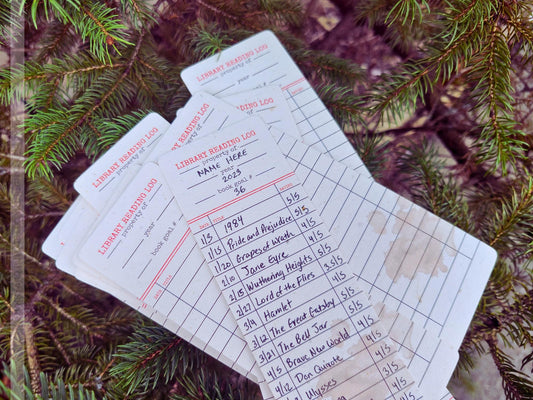 LIBRARY READING LOG
property of
year
book goal #
LIBRARY READING LOG
property of
year
LIBRARY READING LOG
property of
year
book goal #
DATE TITLE
LIBRARY READING LOG
property of
NAME HERE
year
2023
book goal #
36
DATE TITLE RATING
1/3 1984 5/5
1/15 Pride and Prejudice 5/5
1/20 Grapes of Wrath 4/5
2/10 Jane Eyre 4/5
2/15 Wuthering Heights 5/5
2/27 Lord of the Flies 3/5
3/9 Hamlet 4/5
3/12 The Great Gatsby 5/5
3/21 The Bell Jar 5/5
4/5 Brave New World 4/5
4/12 Don Quixote 4/5
Ulysses 4/5